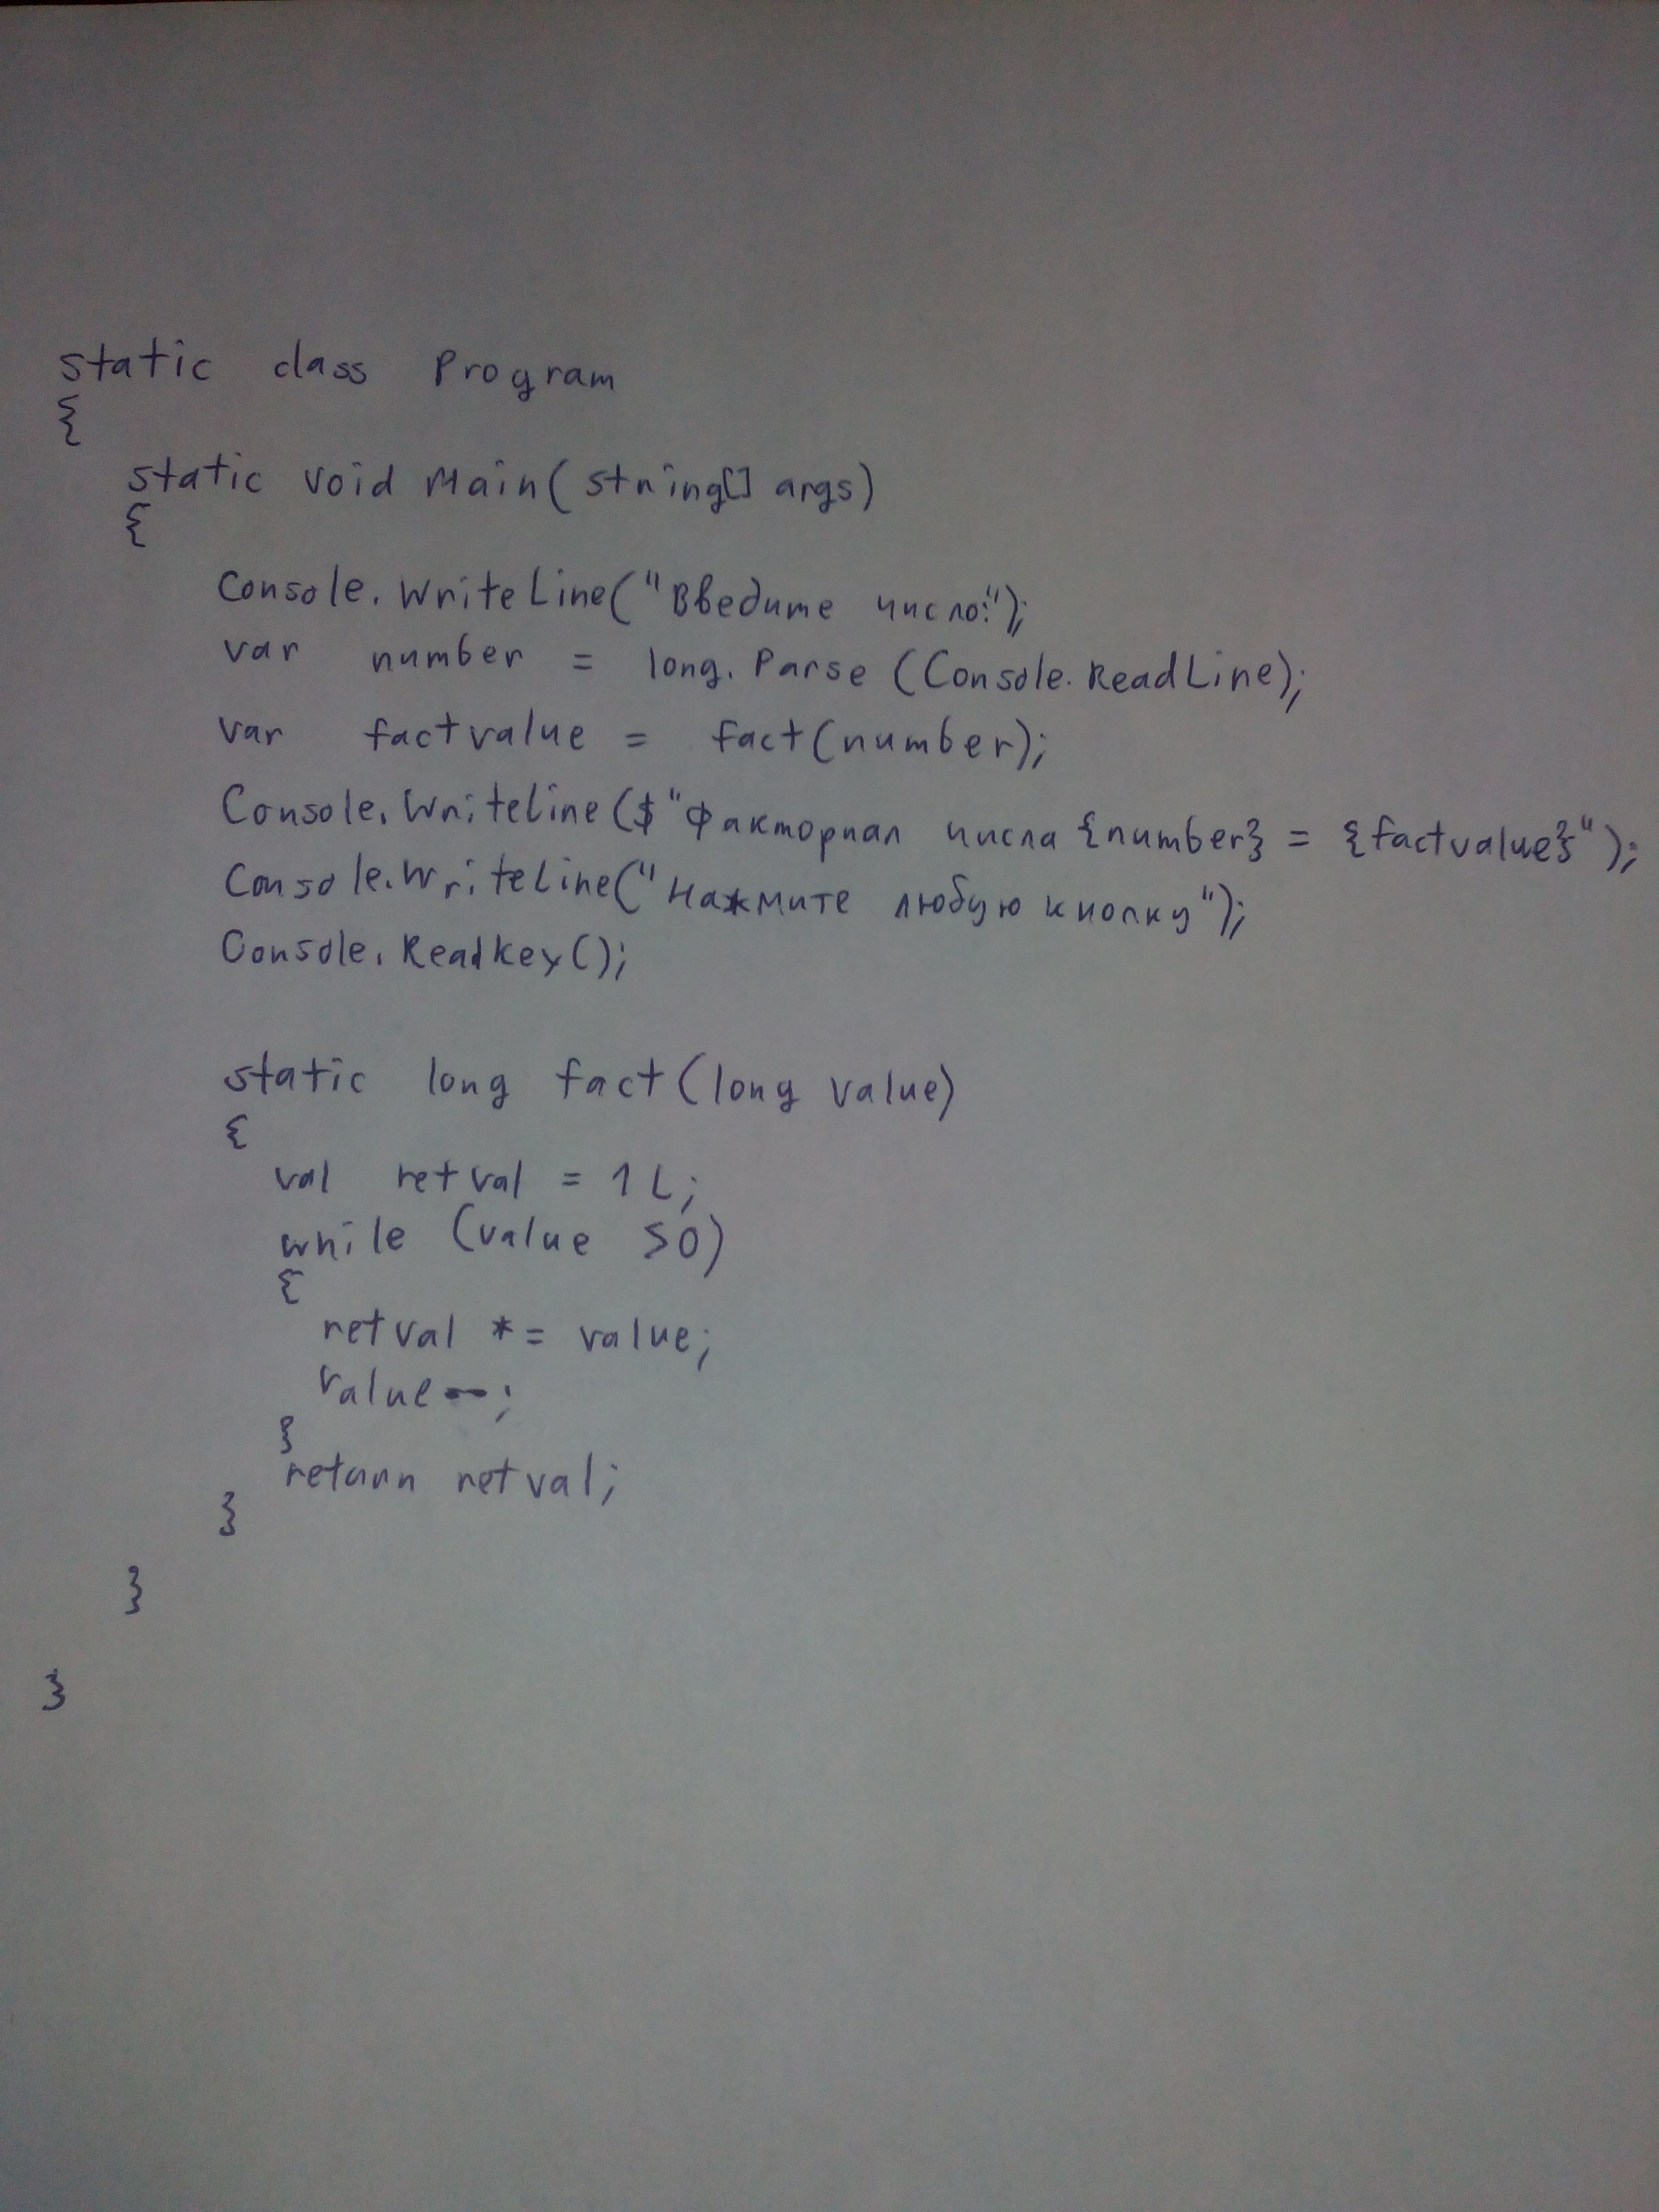 static class Program
{
static void Main(string[] args)
{
Console.WriteLine("Введите число:");
var number = long.Parse(Console.ReadLine);
var factvalue = fact(number);
Console.WriteLine($"Факториал числа {number} = {factvalue}");
Console.WriteLine("Нажмите любую кнопку");
Console.ReadKey();
static long fact(long value)
{
val retval = 1L;
while (value >0)
{
retval *= value;
value--;
}
return retval;
}
}
}